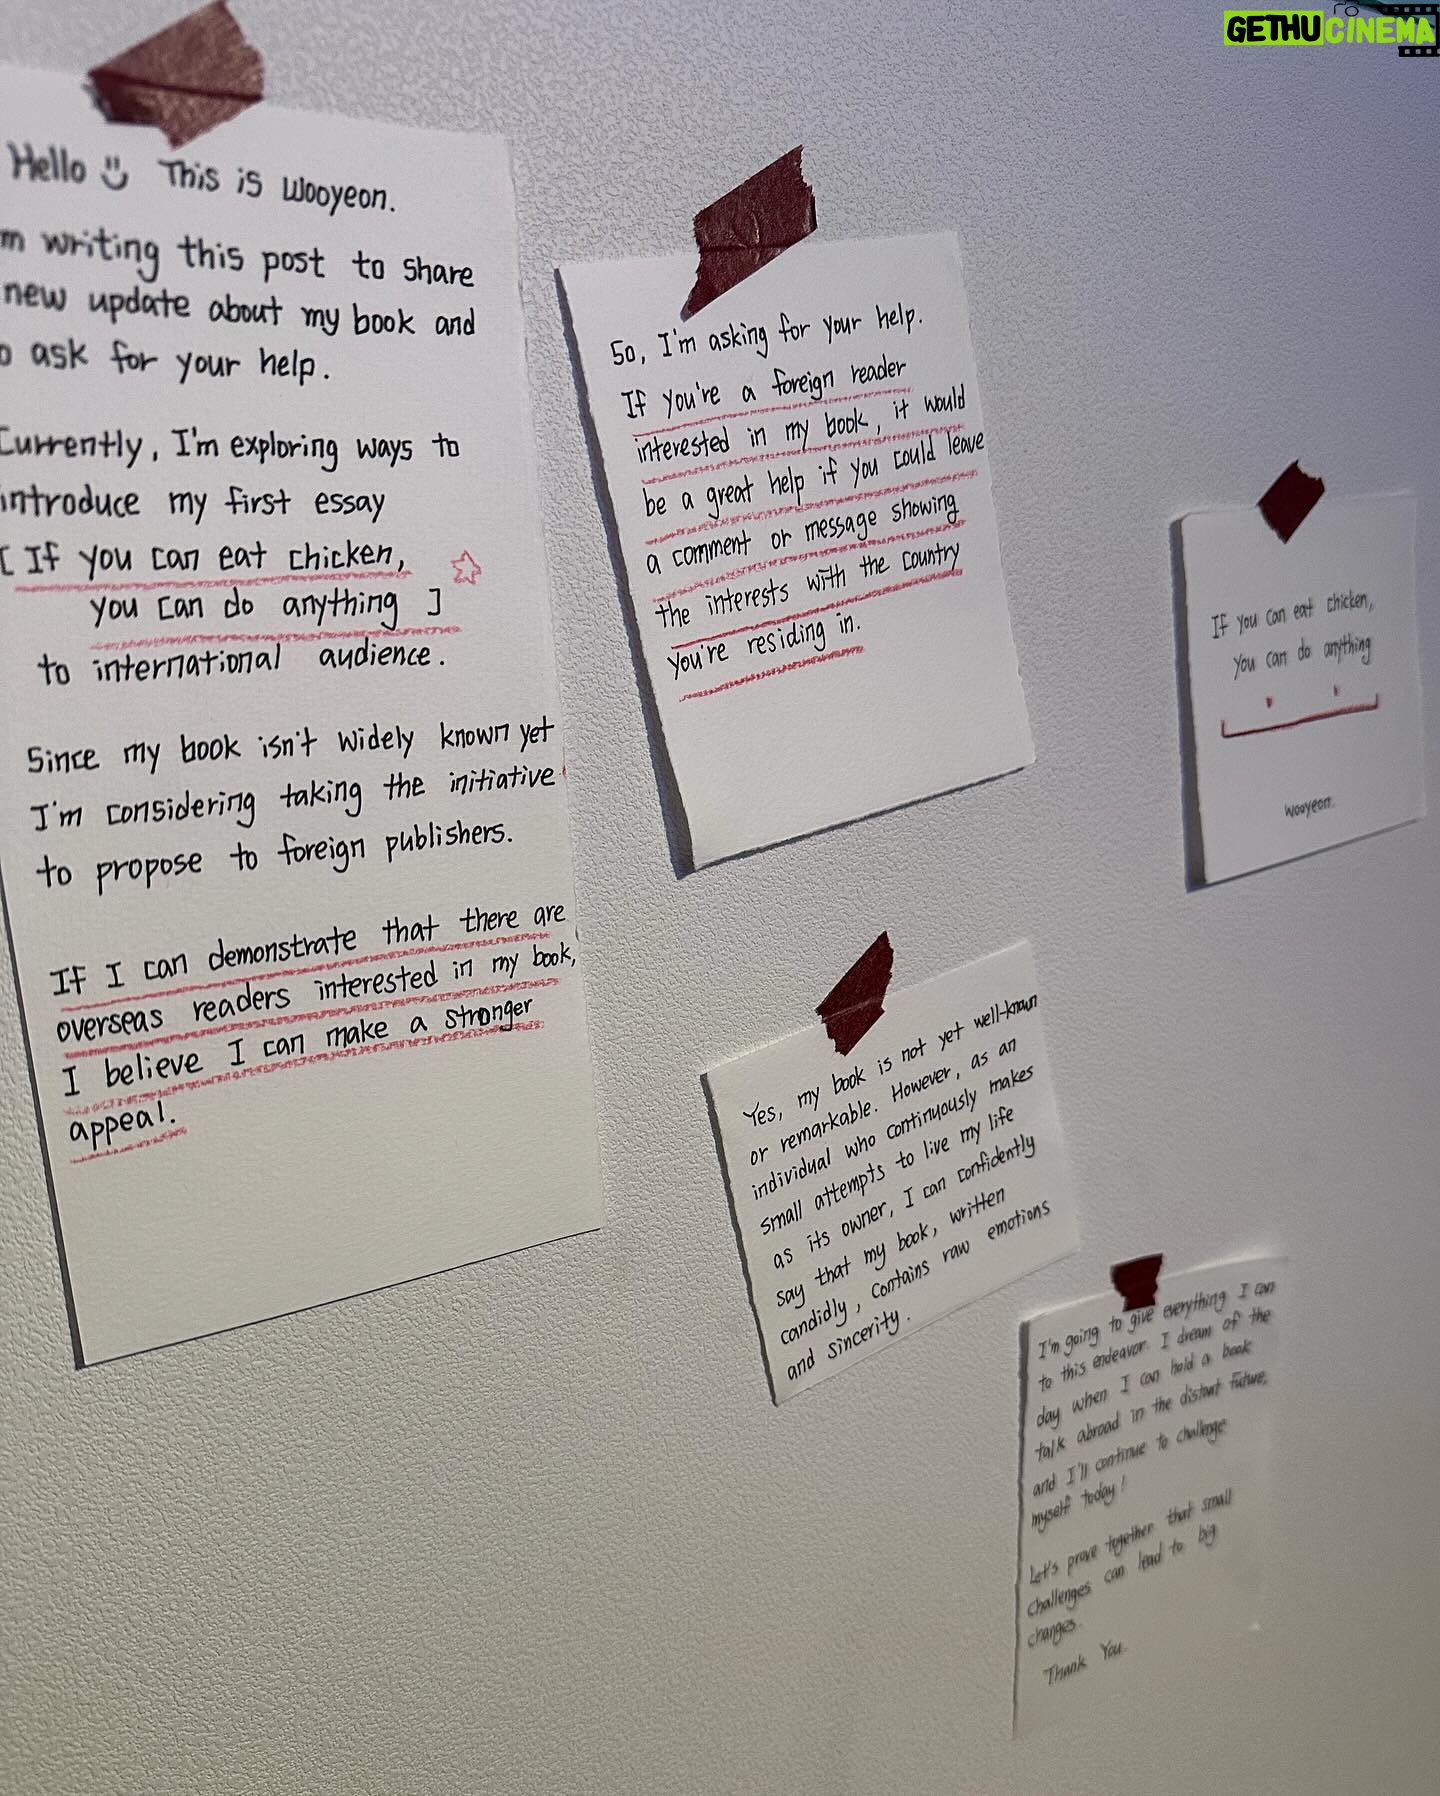 GETHUCINEMA
Hello This is Wooyeon.
m writing this post to share
new update about my book and
o ask for your help.
Currently, I'm exploring ways to
introduce my first essay
[ If you can eat chicken,
you can do anything ]
to international audience.
Since my book isn't widely known yet
I'm considering taking the initiative
to propose to foreign publishers.
If I can demonstrate that there are
overseas readers interested in my book,
I believe I can make a stronger
appeal.
So, I'm asking for your help.
If you're a foreign reader
interested in my book, it would
be a great help if you could leave
a comment or message showing
the interests with the country
you're residing in.
If you can eat chicken,
you can do anything
wooyeon.
Yes, my book is not yet well-known
or remarkable. However, as an
individual who continuously makes
small attempts to live my life
as its owner, I can confidently
say that my book, written
candidly, contains raw emotions
and sincerity.
I'm going to give everything I can
to this endeavor. I dream of the
day when I can hold a book
talk abroad in the distant future,
and I'll continue to challenge
myself today!
Let's prove together that small
challenges can lead to big
changes.
Thank You.